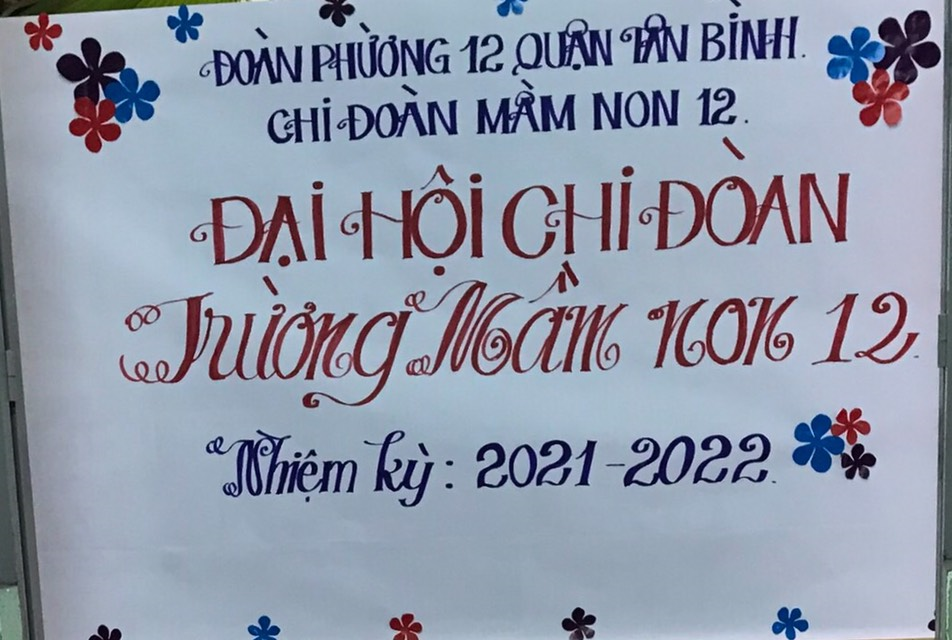 ĐOÀN PHƯỜNG 12 QUẬN TÂN BÌNH.
CHI ĐOÀN MẦM NON 12.
ĐẠI HỘI CHI ĐOÀN
Trường Mầm non 12.
Nhiệm kỳ: 2021-2022.